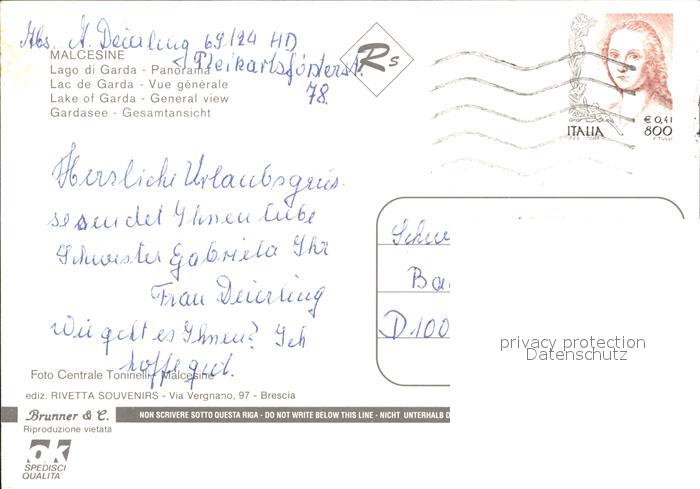 Abs. A. Deierling 69124 HD
Pleikartsförsterst.
78.
MALCESINE
Lago di Garda - Panorama
Lac de Garda - Vue générale
Lake of Garda - General view
Gardasee - Gesamtansicht
Rs
ITALIA
€ 0,41
800
Herzliche Urlaubsgrüs
se sendet Ihnen liebe
Schwester Gabriela Ihr
Frau Deierling
Wie geht es Ihnen? Ich
hoffe gut.
Schw
Ba
D 100
privacy protection
Datenschutz
Foto Centrale Toninelli Malcesine
ediz. RIVETTA SOUVENIRS - Via Vergnano, 97 - Brescia
Brunner & C.
NON SCRIVERE SOTTO QUESTA RIGA - DO NOT WRITE BELOW THIS LINE - NICHT UNTERHALB D
Riproduzione vietata
ok
SPEDISCI
QUALITA'